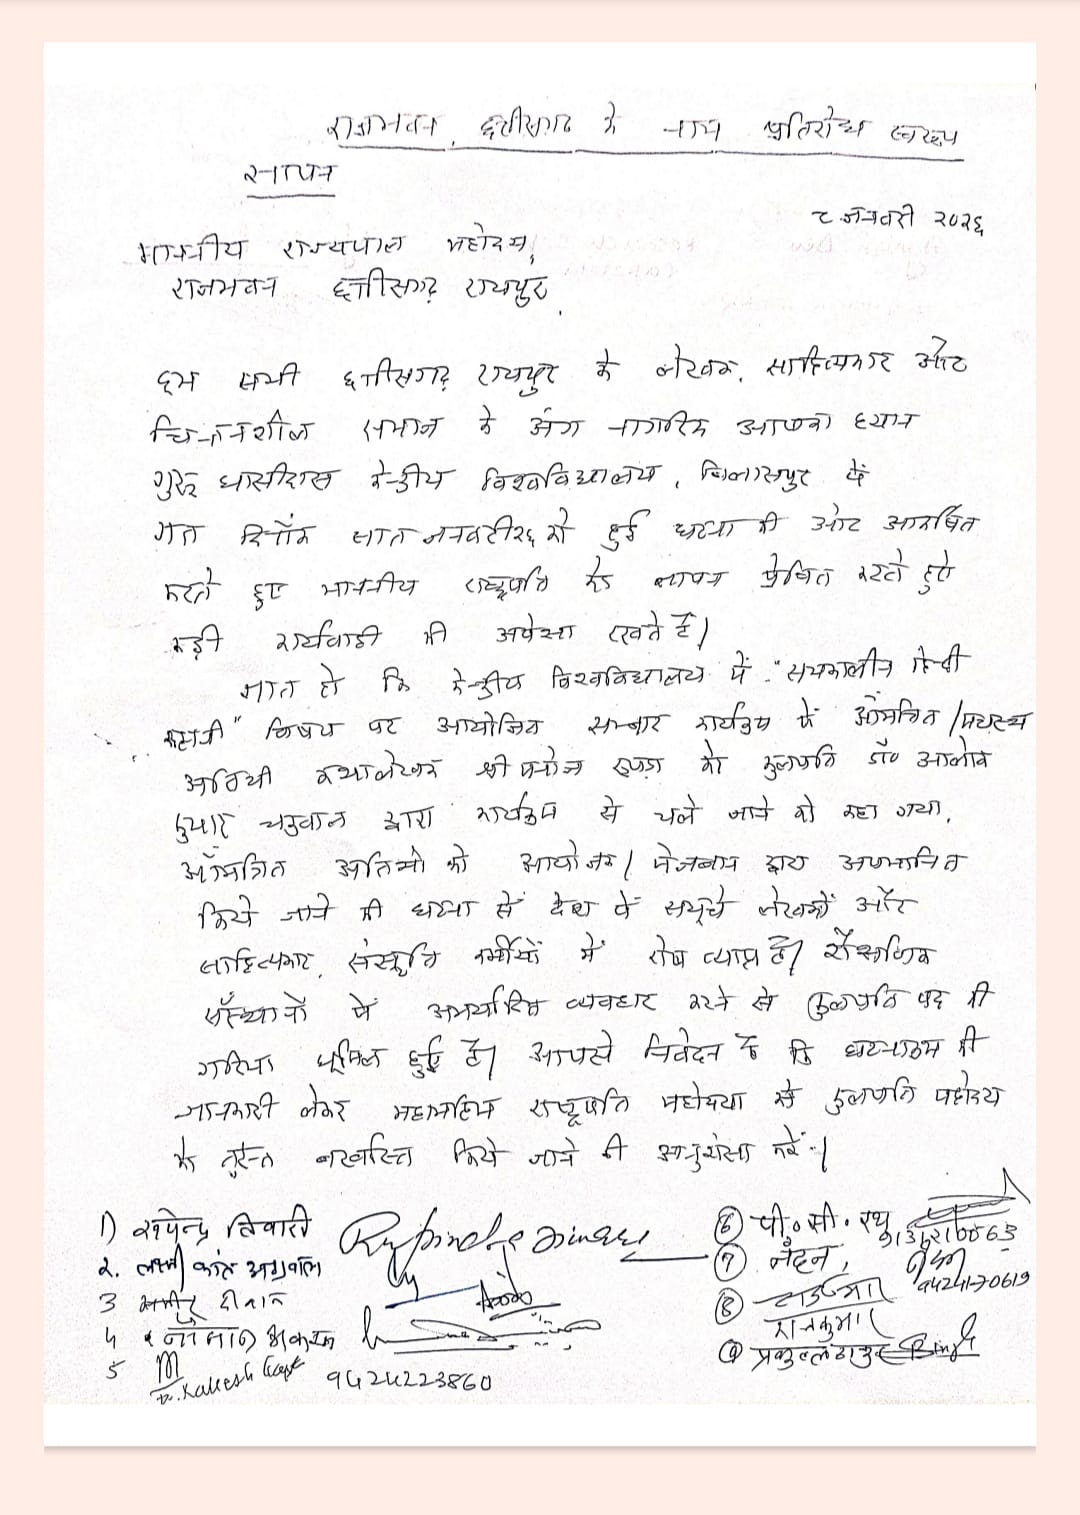 राजभवन, छत्तीसगढ़ के नाम प्रतिरोध स्वरूप
ज्ञापन
८ जनवरी २०२६
माननीय राज्यपाल महोदय,
राजभवन छत्तीसगढ़ रायपुर,
हम सभी छत्तीसगढ़ रायपुर के लेखक, साहित्यकार और
चिन्तनशील समाज के अंग नागरिक आपका ध्यान
गुरु घासीदास केन्द्रीय विश्वविद्यालय, बिलासपुर में
गत दिनाँक सात जनवरी २६ को हुई घटना की ओर आकर्षित
करते हुए माननीय राष्ट्रपति के ज्ञापन प्रेषित करते हुऐ
कड़ी कार्यवाही की अपेक्षा रखते हैं।
ज्ञात हो कि केन्द्रीय विश्वविद्यालय में "समकालीन हिन्दी
कहानी" विषय पर आयोजित सम्वाद कार्यक्रम में आँमंत्रित /
अतिथी कथालेखक श्री मनोज रूपड़ा को कुलपति डॉ० आलोक
कुमार चक्रवाल द्वारा कार्यक्रम से चले जाने को कहा गया,
आँमंत्रित अतिथी को आयोजक / मेजबान द्वारा अपमानित
किये जाने की घटना से देश के समूचे लेखकों और
साहित्यकार, संस्कृति कर्मीयों में रोष व्याप्त है। शैक्षणिक
सँस्थानों में अमर्यादित व्यवहार करने से कुलपति पद की
गरिमा धूमिल हुई है। आपसे निवेदन है कि घटनाक्रम की
जानकारी लेकर महामहिम राष्ट्रपति महोदया से कुलपति महोदय
को तुरन्त बरखास्त किये जाने की अनुशंसा करें।
1) रूपेन्द्र तिवारी
2. लक्ष्मी कांत अग्रवाल
3 समीर दीवान
4
5 Dr. Rakesh Gupt 9424223860
⑥ पी० सी. रथ
⑦ नंदन, 9424170619
⑧ राजकुमार
⑨ प्रफुल्ल ठाकुर